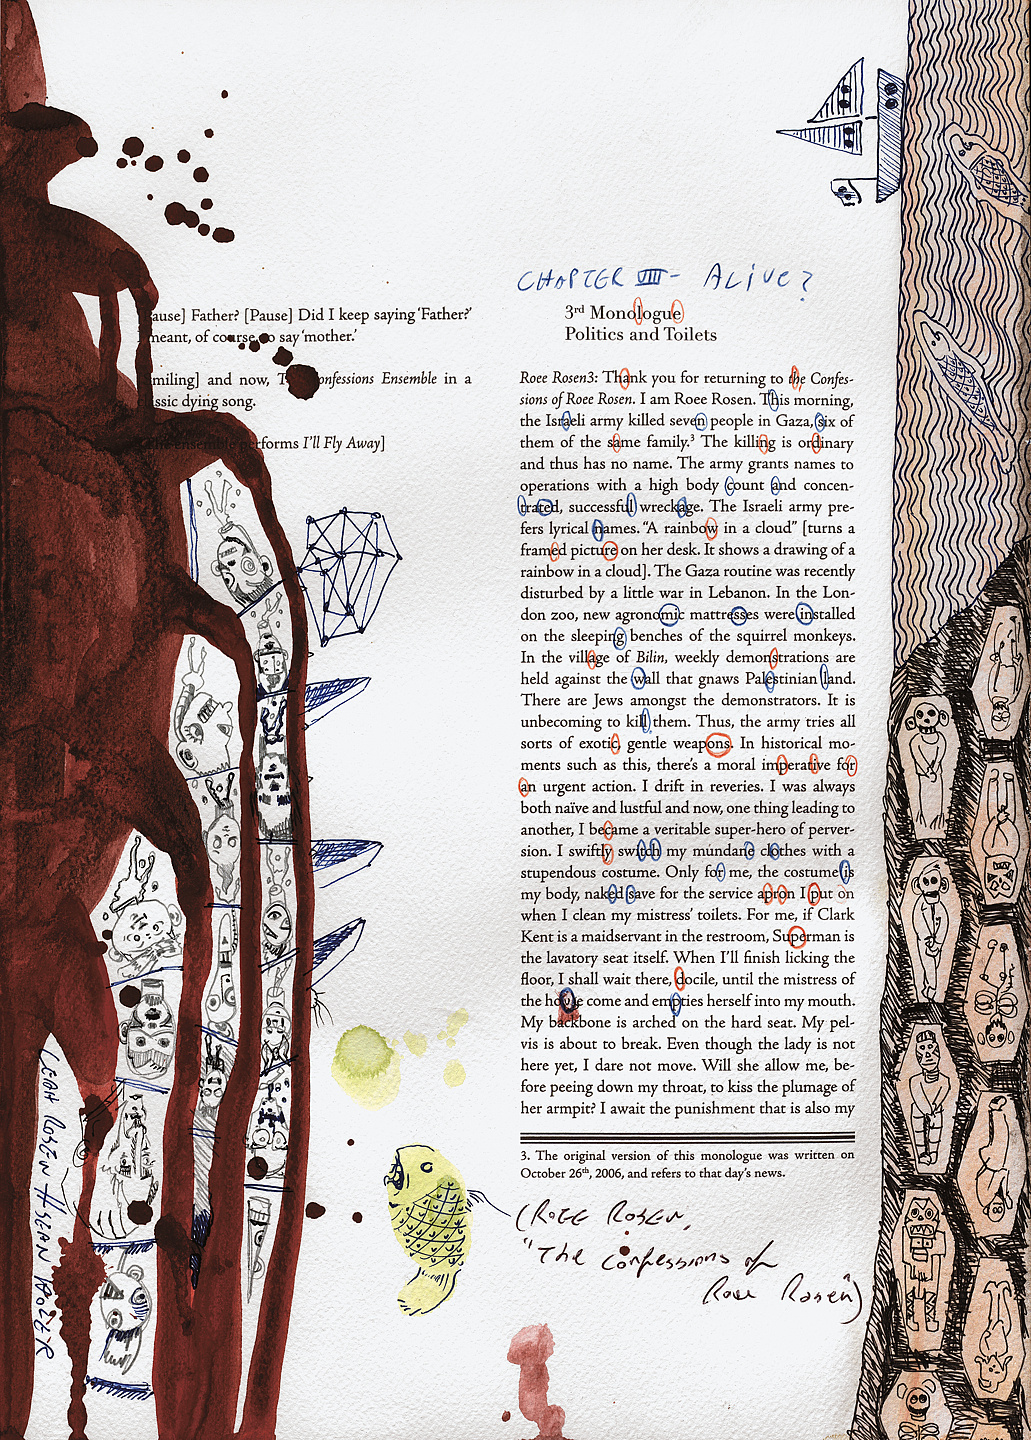 ause] Father? [Pause] Did I keep saying 'Father?'
meant, of course, to say 'mother.'
miling] and now, The Confessions Ensemble in a
ssic dying song.
[The ensemble performs I'll Fly Away]
CHAPTER VIII - ALIVE?
3rd Monologue
Politics and Toilets
Roee Rosen3: Thank you for returning to the Confes-
sions of Roee Rosen. I am Roee Rosen. This morning,
the Israeli army killed seven people in Gaza, six of
them of the same family.³ The killing is ordinary
and thus has no name. The army grants names to
operations with a high body count and concen-
trated, successful wreckage. The Israeli army pre-
fers lyrical names. "A rainbow in a cloud" [turns a
framed picture on her desk. It shows a drawing of a
rainbow in a cloud]. The Gaza routine was recently
disturbed by a little war in Lebanon. In the Lon-
don zoo, new agronomic mattresses were installed
on the sleeping benches of the squirrel monkeys.
In the village of Bilin, weekly demonstrations are
held against the wall that gnaws Palestinian land.
There are Jews amongst the demonstrators. It is
unbecoming to kill them. Thus, the army tries all
sorts of exotic, gentle weapons. In historical mo-
ments such as this, there's a moral imperative for
an urgent action. I drift in reveries. I was always
both naïve and lustful and now, one thing leading to
another, I became a veritable super-hero of perver-
sion. I swiftly switch my mundane clothes with a
stupendous costume. Only for me, the costume is
my body, naked save for the service apron I put on
when I clean my mistress' toilets. For me, if Clark
Kent is a maidservant in the restroom, Superman is
the lavatory seat itself. When I'll finish licking the
floor, I shall wait there, docile, until the mistress of
the house come and empties herself into my mouth.
My backbone is arched on the hard seat. My pel-
vis is about to break. Even though the lady is not
here yet, I dare not move. Will she allow me, be-
fore peeing down my throat, to kiss the plumage of
her armpit? I await the punishment that is also my
3. The original version of this monologue was written on
October 26th, 2006, and refers to that day's news.
(Roee Rosen,
"The Confessions of
Roee Rosen")
LEAH ROSEN